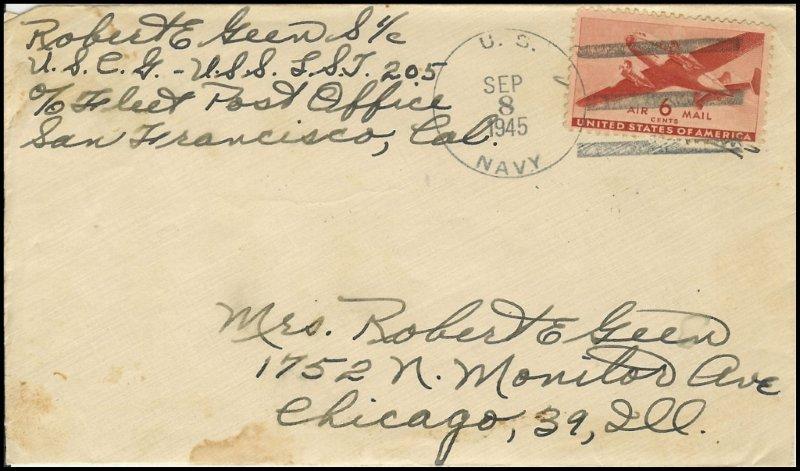 Robert E Geen S 1/c
U.S.C.G. - U.S.S. L.S.T. 205
c/o Fleet Post Office
San Francisco, Cal.
U. S.
SEP
8
1945
NAVY
AIR 6 MAIL
CENTS
UNITED STATES OF AMERICA
Mrs. Robert E Geen
1752 N. Monitor Ave
Chicago, 39, Ill.